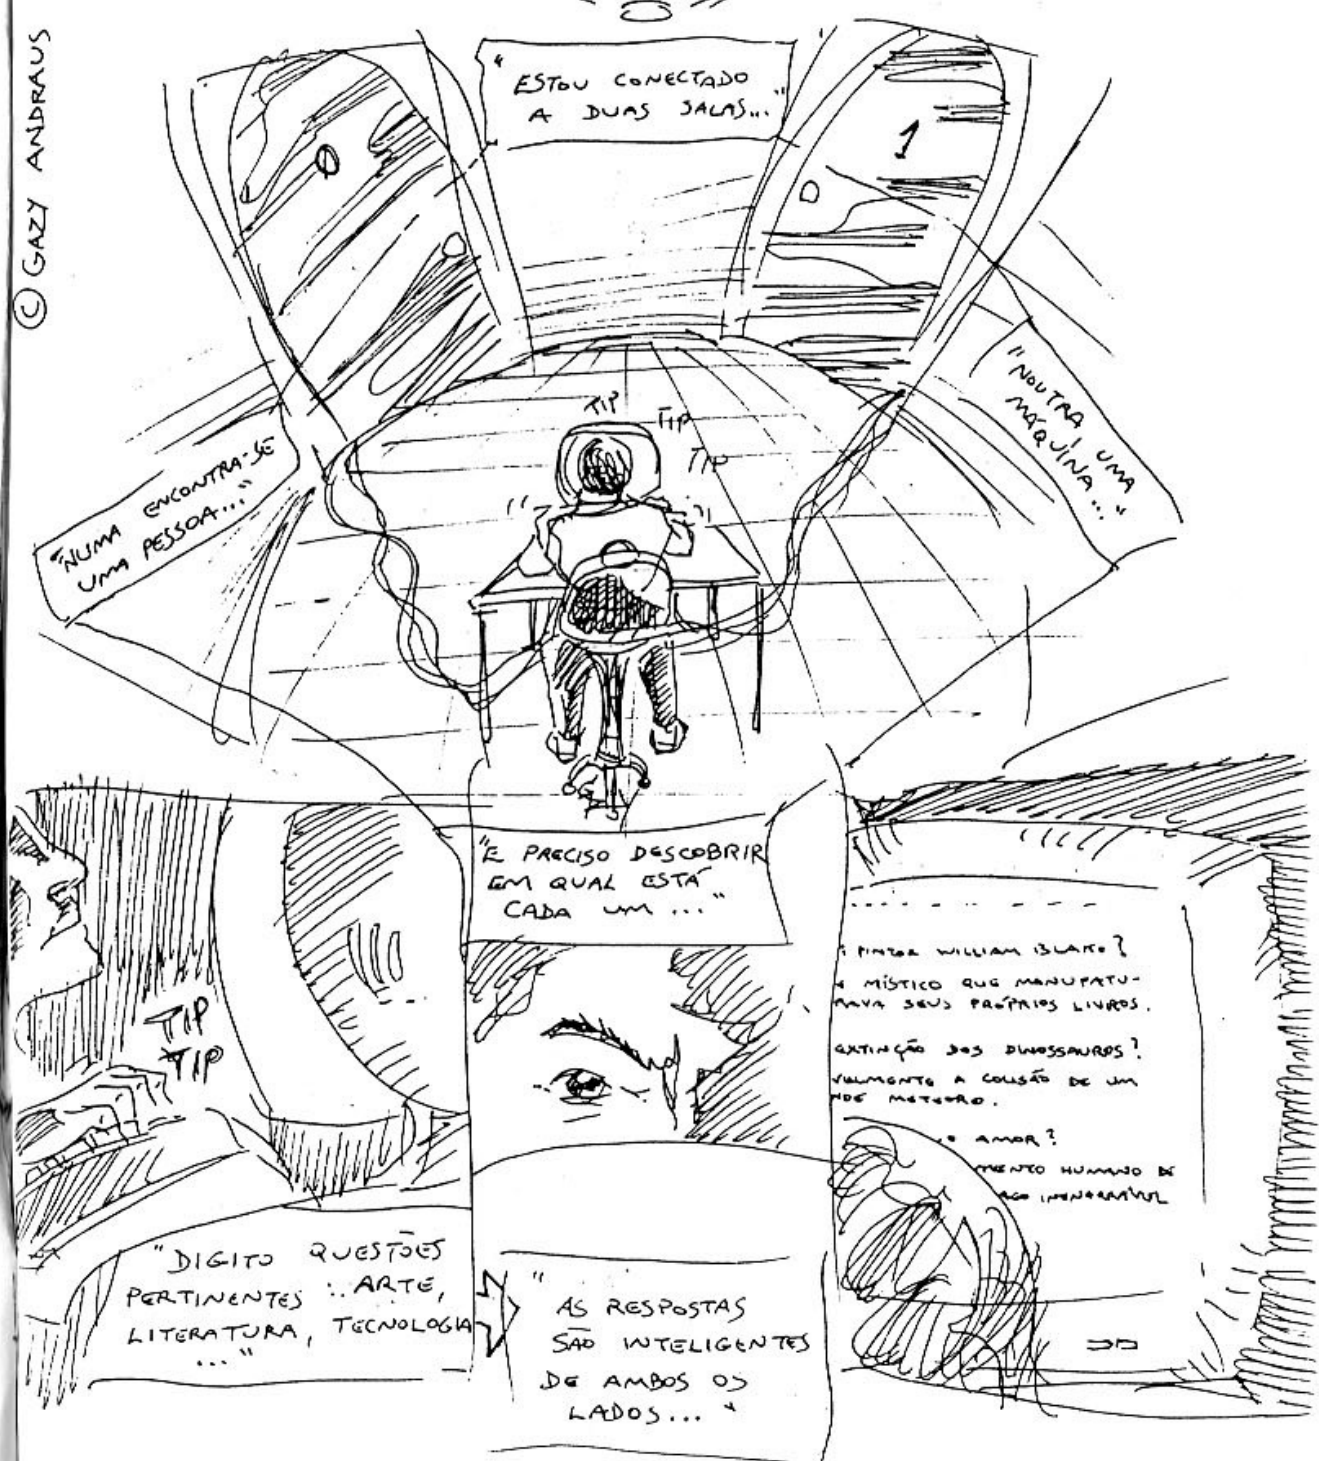 © GAZY ANDRAUS
"ESTOU CONECTADO
A DUAS SALAS..."
0
1
"NUMA ENCONTRA-SE
UMA PESSOA..."
"NOUTRA, UMA
MÁQUINA..."
TIP
TIP
TIP
"É PRECISO DESCOBRIR
EM QUAL ESTÁ
CADA UM..."
TIP
TIP
PINTOR WILLIAM BLAKE?
MÍSTICO QUE MANUFATU-
RAVA SEUS PRÓPRIOS LIVROS.
EXTINÇÃO DOS DINOSSAUROS?
VELMENTE A COLISÃO DE UM
NDE METEORO.
O AMOR?
MENTO HUMANO DE
"DIGITO QUESTÕES
PERTINENTES: ARTE,
LITERATURA, TECNOLOGIA
..."
"AS RESPOSTAS
SÃO INTELIGENTES
DE AMBOS OS
LADOS..."